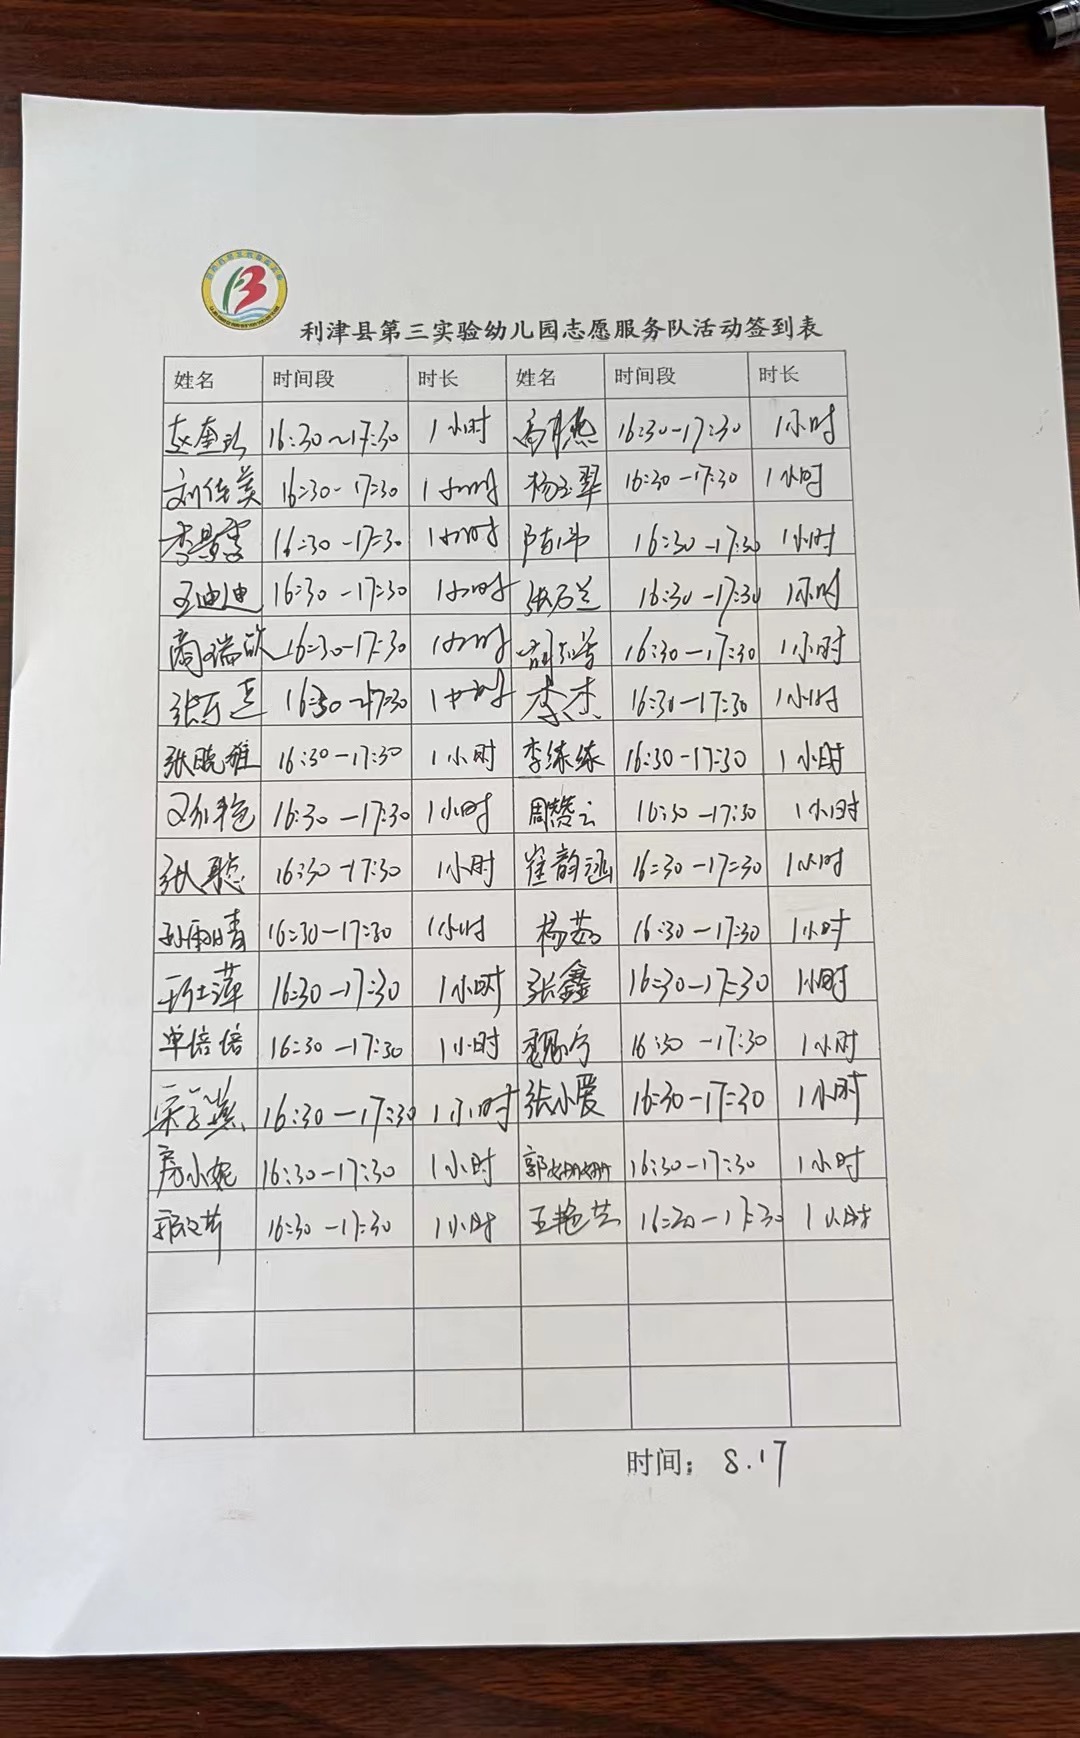 利津县第三实验幼儿园志愿服务队活动签到表
姓名 时间段 时长 姓名 时间段 时长
赵奎 16:30~17:30 1小时 高月燕 16:30-17:30 1小时
刘佳美 16:30-17:30 1小时 杨玉翠 16:30-17:30 1小时
李景雪 16:30-17:30 1小时 16:30-17:30 1小时
王迪迪 16:30-17:30 1小时 张石兰 16:30-17:30 1小时
商瑞欣 16:30-17:30 1小时 16:30-17:30 1小时
张 16:30-17:30 1小时 李杰 16:30-17:30 1小时
张晓雅 16:30-17:30 1小时 李练练 16:30-17:30 1小时
16:30-17:30 1小时 周赞云 16:30-17:30 1小时
张聪 16:30-17:30 1小时 崔韵涵 16:30-17:30 1小时
孙雨晴 16:30-17:30 1小时 杨茹 16:30-17:30 1小时
萍 16:30-17:30 1小时 张鑫 16:30-17:30 1小时
单培培 16:30-17:30 1小时 16:30-17:30 1小时
宋 燕 16:30-17:30 1小时 张小爱 16:30-17:30 1小时
房小妮 16:30-17:30 1小时 郭姗姗 16:30-17:30 1小时
郭 16:30-17:30 1小时 王艳芸 16:30-17:30 1小时
时间: 8.17